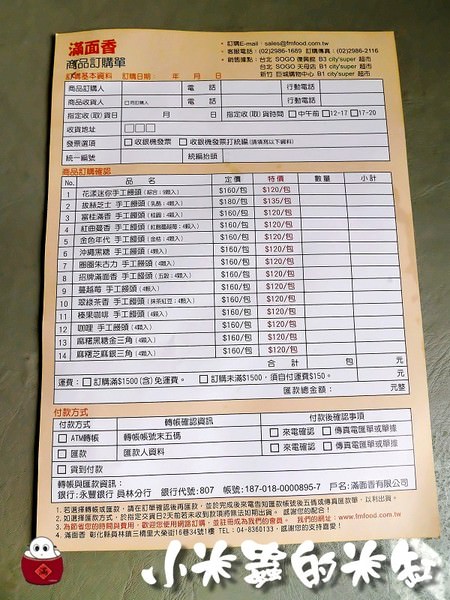 滿面香
商品訂購單
• 訂購E-mail：sales@fmfood.com.tw
• 客服電話：(02)2986-1689 訂購傳真：(02)2986-2116
• 銷售據點：台北 SOGO 復興館 B3 city'super 超市
台北 SOGO 天母店 B1 city'super 超市
新竹 巨城購物中心 B1 city'super 超市
訂購基本資料 訂購日期： 年 月 日
商品訂購人 電話 行動電話
商品收貨人 □同訂購人 電話 行動電話
指定收(取)貨日 月 日 指定收(取)貨時間 □中午前 □12-17 □17-20
收貨地址 □□□
發票選項 □收銀機發票 □收銀機發票打統編(請填寫以下資料)
統一編號 統編抬頭
商品訂購確認
No. 品名 定價 特價 數量 小計
1 花漾迷你手工饅頭(綜合：9顆入) $160/包 $120/包
2 拔絲芝士 手工饅頭(乳酪：4顆入) $180/包 $135/包
3 富桂滿香 手工饅頭(桂圓：4顆入) $160/包 $120/包
4 紅曲醬香 手工饅頭 $160/包 $120/包
5 金色年代 手工饅頭(金桔：4顆入) $160/包 $120/包
6 沖繩黑糖 手工饅頭(4顆入) $160/包 $120/包
7 圈圈朱古力 手工饅頭(4顆入) $160/包 $120/包
8 招牌滿面香 手工饅頭(五穀：4顆) $160/包 $120/包
9 蔓越莓 手工饅頭(4顆入) $160/包 $120/包
10 翠綠茶香 手工饅頭(抹茶紅豆：4顆) $160/包 $120/包
11 榛果咖啡 手工饅頭(4顆入) $160/包 $120/包
12 咖哩 手工饅頭(4顆入) $160/包 $120/包
13 麻糬黑糖金三角(4顆入) $160/包 $120/包
14 麻糬芝麻銀三角(4顆入) $160/包 $120/包
合計 包 元
運費：□訂購滿$1500(含)免運費。 □訂購未滿$1500，須自付運費$150。 元
匯款總金額： 元整
付款方式
付款方式 轉帳確認資訊 付款後確認事項
□ATM轉帳 轉帳帳號末五碼 □來電確認 □傳真電匯單或單據
□匯款 匯款人資料 □來電確認 □傳真電匯單或單據
□貨到付款
轉帳與匯款資訊：
銀行:永豐銀行 員林分行 銀行代號:807 帳號:187-018-0000895-7 戶名:滿面香有限公司
1.若選擇轉帳或匯款，請在訂單確認後再匯款，並於完成後來電告知匯款帳號後五碼或傳真匯款單，以利出貨。
2.如選擇匯款方式，於指定交貨日2天前若未收到款項將無法如期出貨。感謝您的配合！
3.為節省您的時間與費用，歡迎您使用網路訂購，並註冊成為我們的會員。 我們的網址：www.fmfood.com.tw
4.滿面香 彰化縣員林鎮三橋里大榮街16巷34號1樓 TEL：04-8360133，感謝您的支持喜愛！
小米蟲的米缸